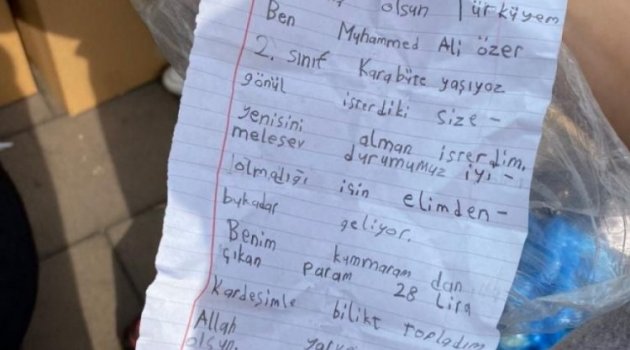 olsun Türkiyem
Ben Muhammed Ali özer
2. sınıf Karabükte yaşıyoz
gönül isterdiki size -
yenisini alman isterdim.
melesev durumumuz iyi -
olmadığı için elimden -
bukadar geliyor.
Benim kummaram dan
çıkan param 28 Lira
Kardeşimle bilikt topladım
Allah
olsun.